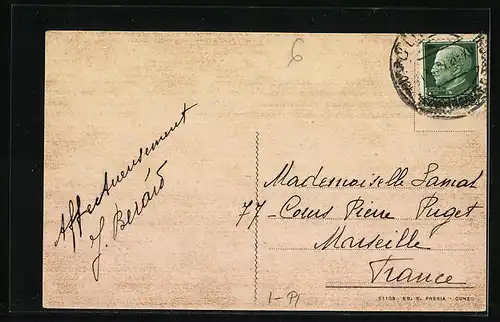 6
Affectueusement
J. Berard
Mademoiselle Lamat
77 - Cours Pierre Puget
Marseille
France
1-Pl
51103 ED. E. FRESIA - CUNEO